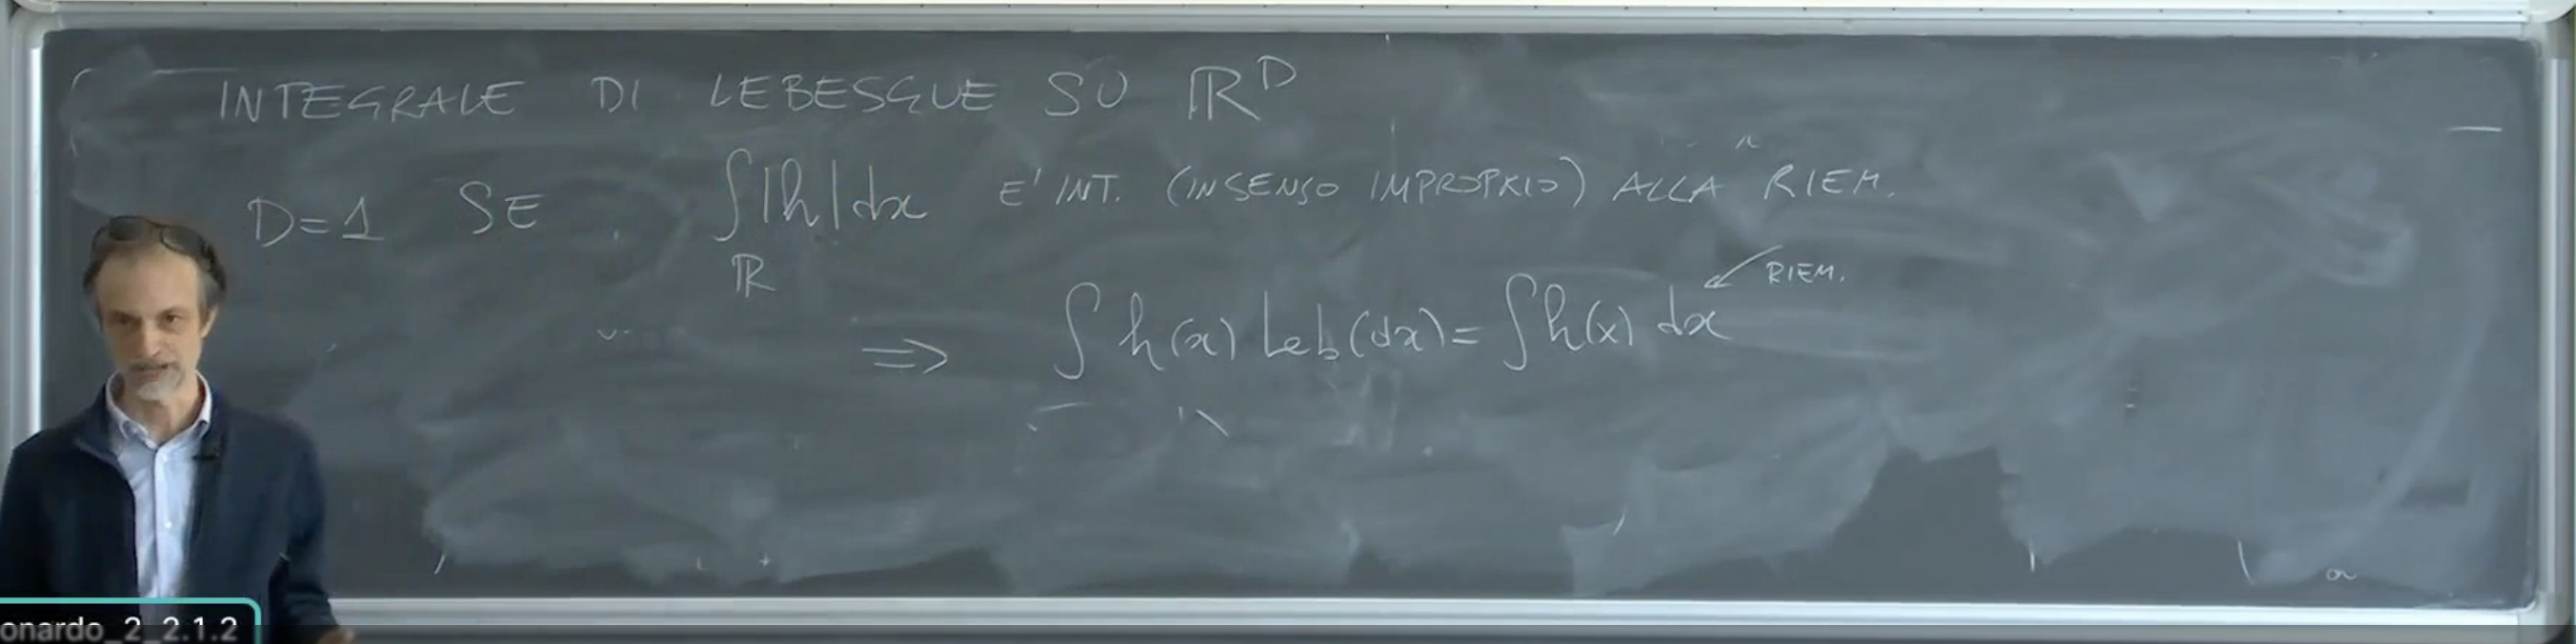 INTEGRALE DI LEBESGUE SU ℝᴰ
D=1 SE ∫|h|dx E' INT. (IN SENSO IMPROPRIO) ALLA RIEM.
ℝ
RIEM.
⇒ ∫h(x) Leb(dx)=∫h(x) dx
onardo_2_2.1.2